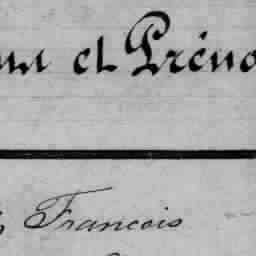 et Préno
François